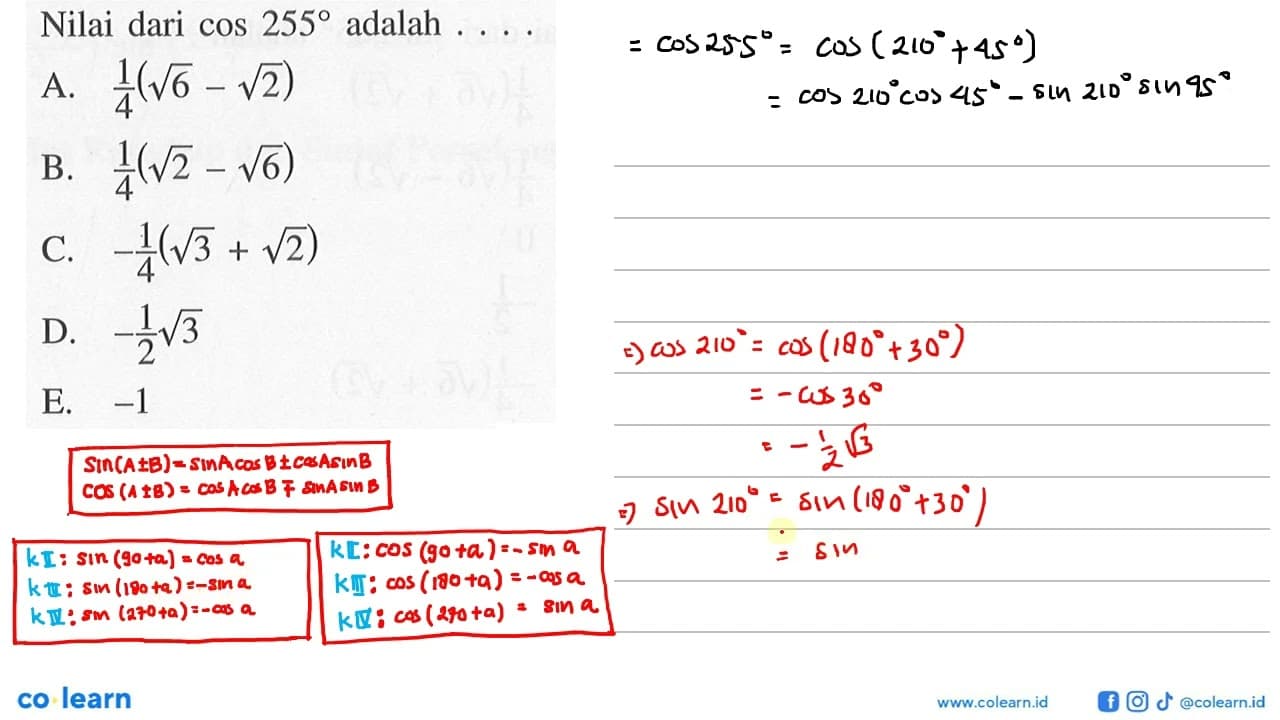 Nilai dari cos 255° adalah . . . .
A. 1/4(√6 – √2)
B. 1/4(√2 – √6)
C. –1/4(√3 + √2)
D. –1/2√3
E. –1
= cos 255° = cos (210° + 45°)
= cos 210° cos 45° – sin 210° sin 45°
=) cos 210° = cos (180° + 30°)
= – cos 30°
= – 1/2 √3
=) sin 210° = sin (180° + 30°)
= sin
Sin (A ± B) = sin A cos B ± cos A sin B
COS (A ± B) = cos A cos B ∓ sin A sin B
k II : sin (90 + a) = cos a
k III : sin (180 + a) = – sin a
k IV : sin (270 + a) = – cos a
k II : cos (90 + a) = – sin a
k III : cos (180 + a) = – cos a
k IV : cos (270 + a) = sin a
co learn
www.colearn.id
@colearn.id